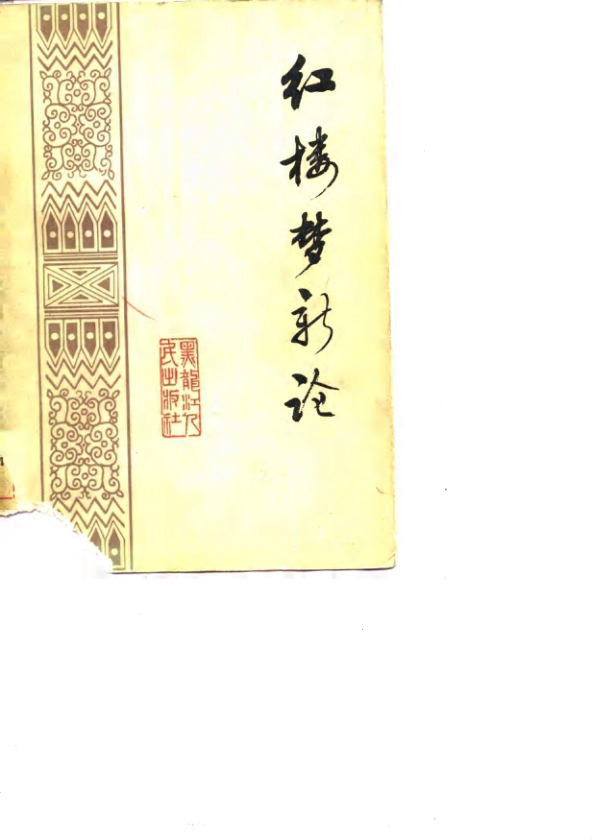 红楼梦新论
黑龍江人
民出版社